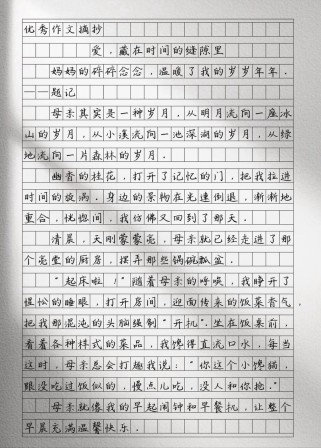 优秀作文摘抄
爱，藏在时间的缝隙里
妈妈的碎碎念念，温暖了我的岁岁年年。
——题记
母亲其实是一种岁月，从明月流向一座冰
山的岁月，从小溪流向一池深湖的岁月，从绿
地流向一片森林的岁月。
幽香的桂花，打开了记忆的门，把我拉进
时间的旋涡。身边的景物在光速倒退，渐渐地
重合，恍惚间，我仿佛又回到了那天。
清晨，天刚蒙蒙亮，母亲就已经走进了那
个亮堂的厨房，摆弄那些锅碗瓢盆。
“起床啦！”随着母亲的呼唤，我睁开了
惺忪的睡眼，打开房间，迎面传来的饭菜香气，
把我那混沌的头脑强制“开机”。坐在饭桌前，
看着各种样式的菜品，我馋得直流口水，每当
这时，母亲总会打趣我说：“你这个小馋猫，
跟没吃过饭似的，慢点儿吃，没人和你抢。”
母亲就像我的早起闹钟和早餐机，让整个
早晨充满温馨快乐。